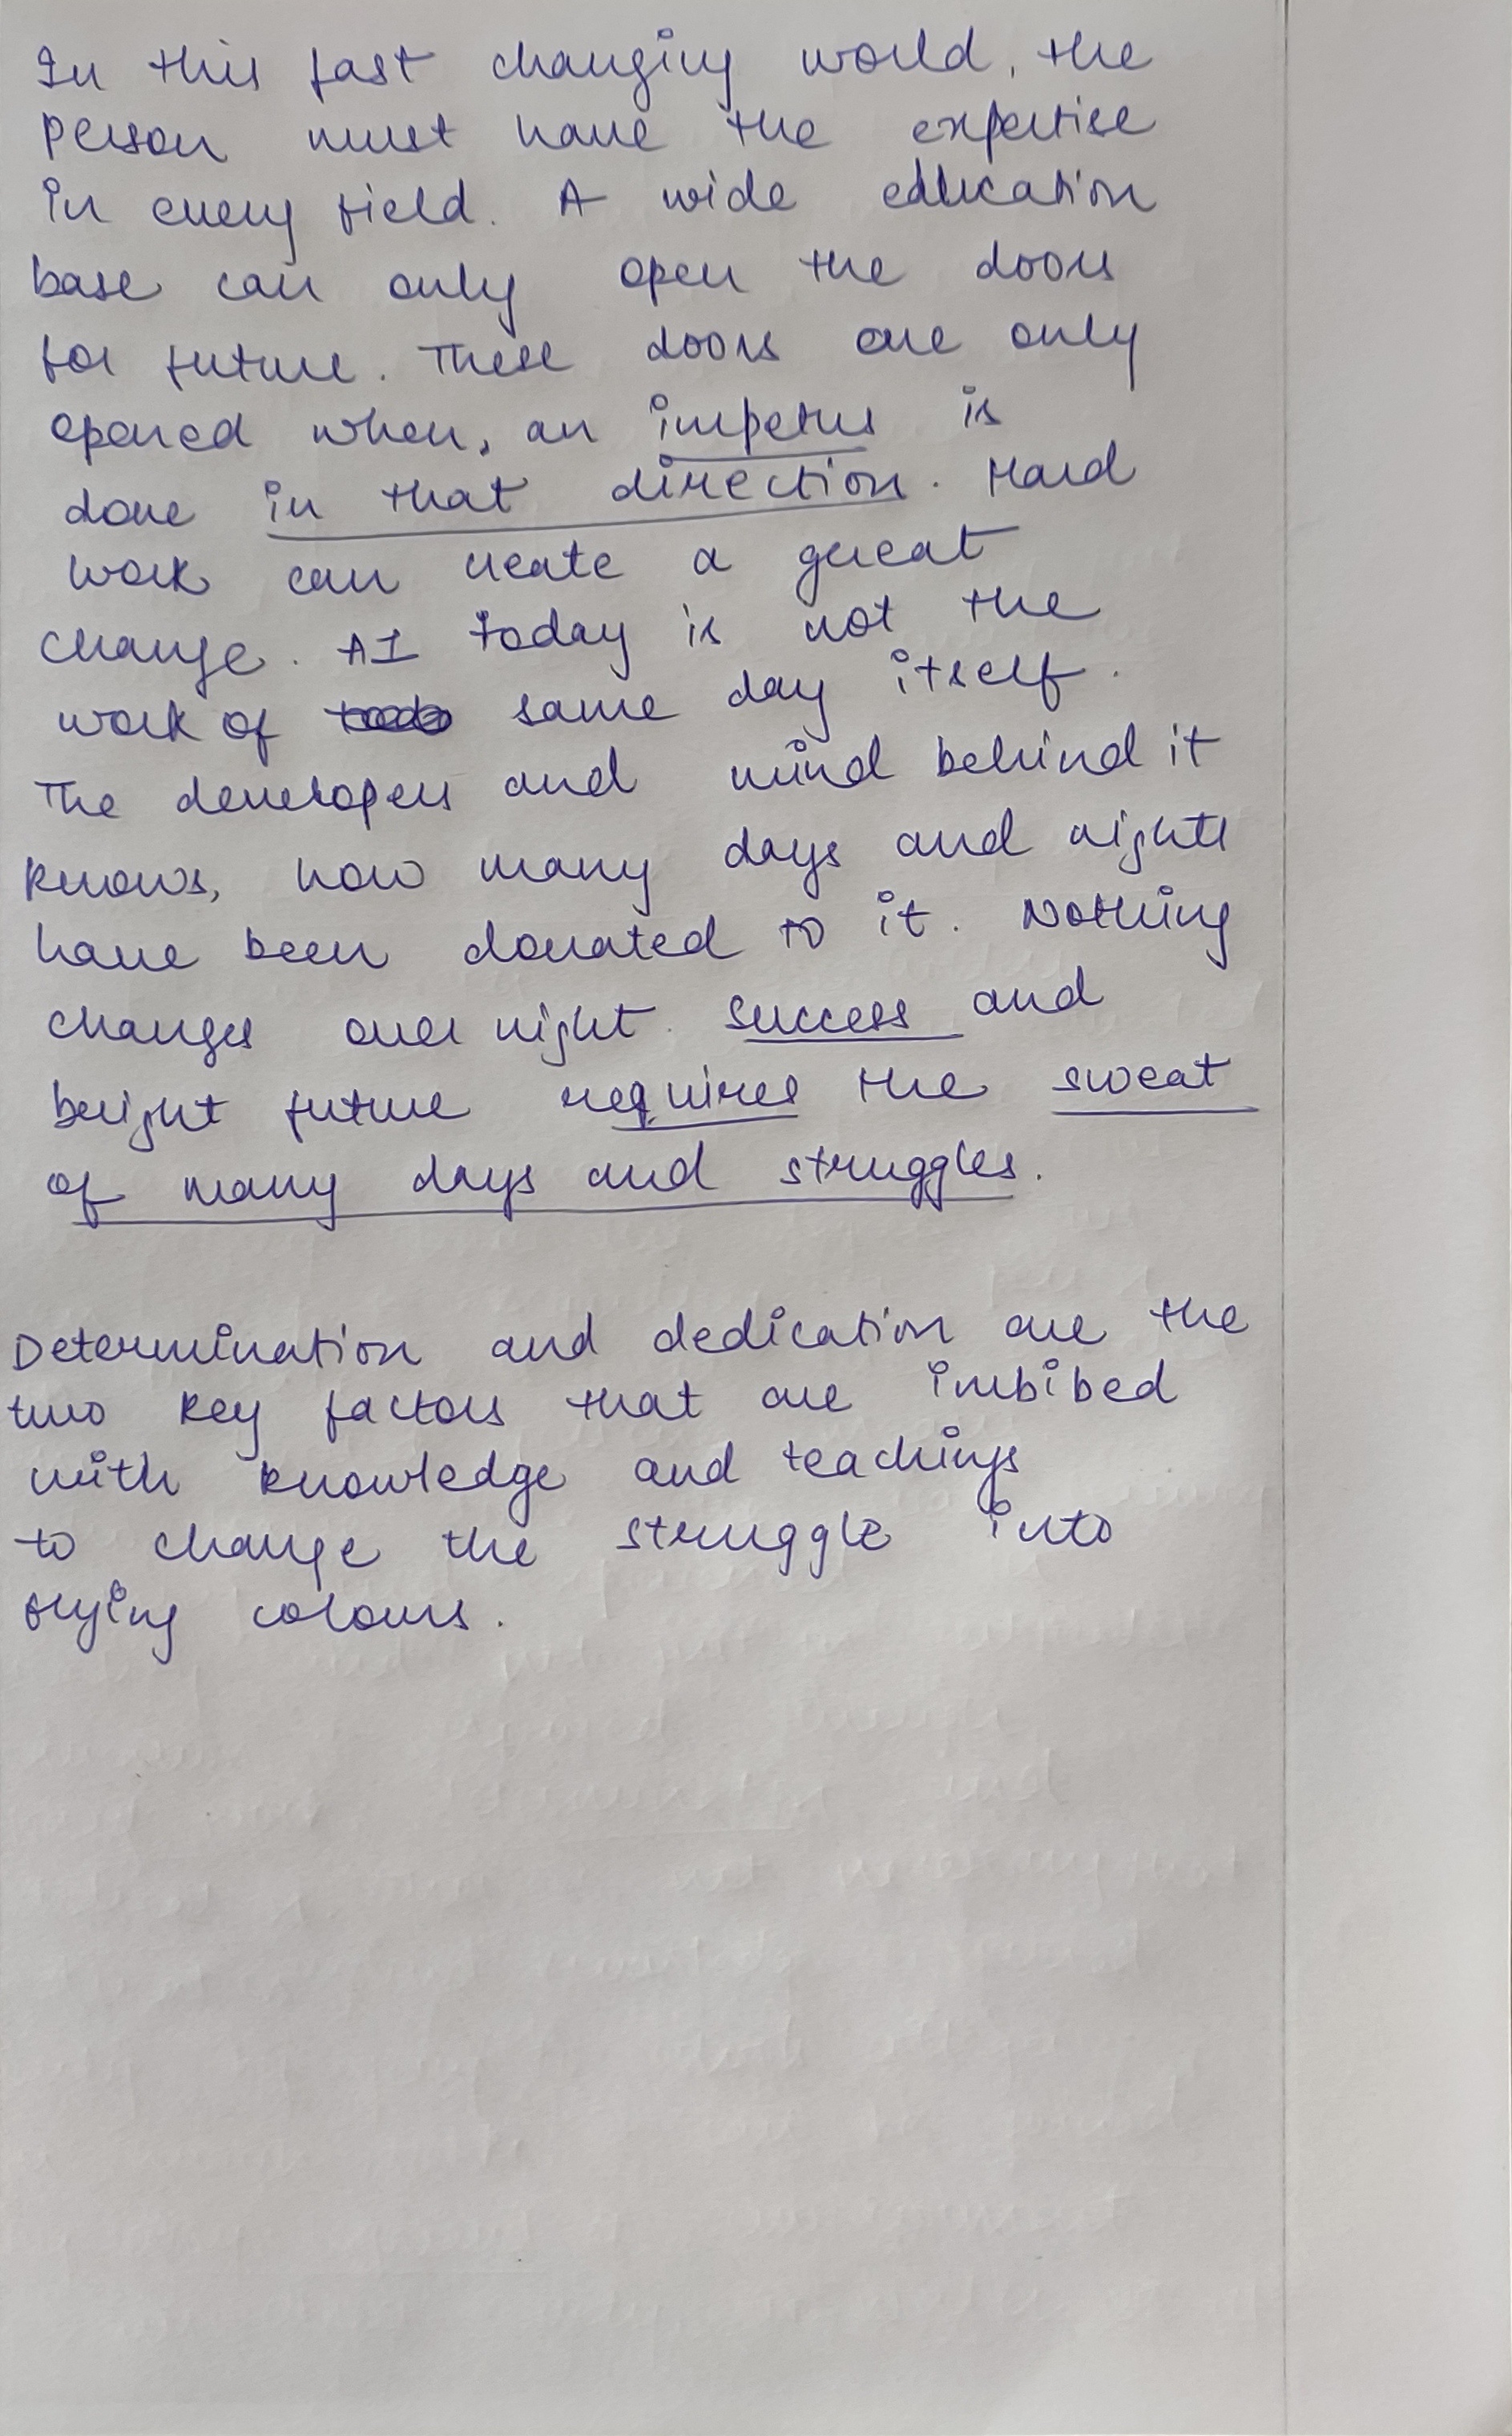 In this fast changing world, the
person must have the expertise
in every field. A wide education
base can only open the doors
for future. These doors are only
opened when, an impetus is
done in that direction. Hard
work can create a great
change. AI today is not the
work of same day itself.
The developers and mind behind it
knows, how many days and nights
have been donated to it. Nothing
changes over night. Success and
bright future requires the sweat
of many days and struggles.
Determination and dedication are the
two key factors that are imbibed
with knowledge and teachings
to change the struggle into
flying colours.